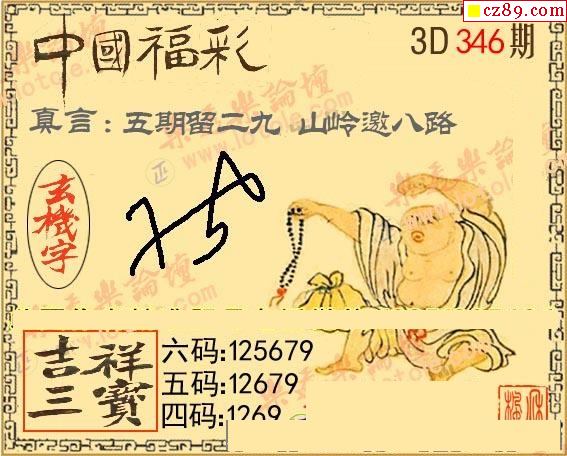 cz89.com
中國福彩
3D 346期
真言：五期留二九 山岭邀八路
玄機字
吉祥三寶
六码:125679
五码:12679
四码:1269